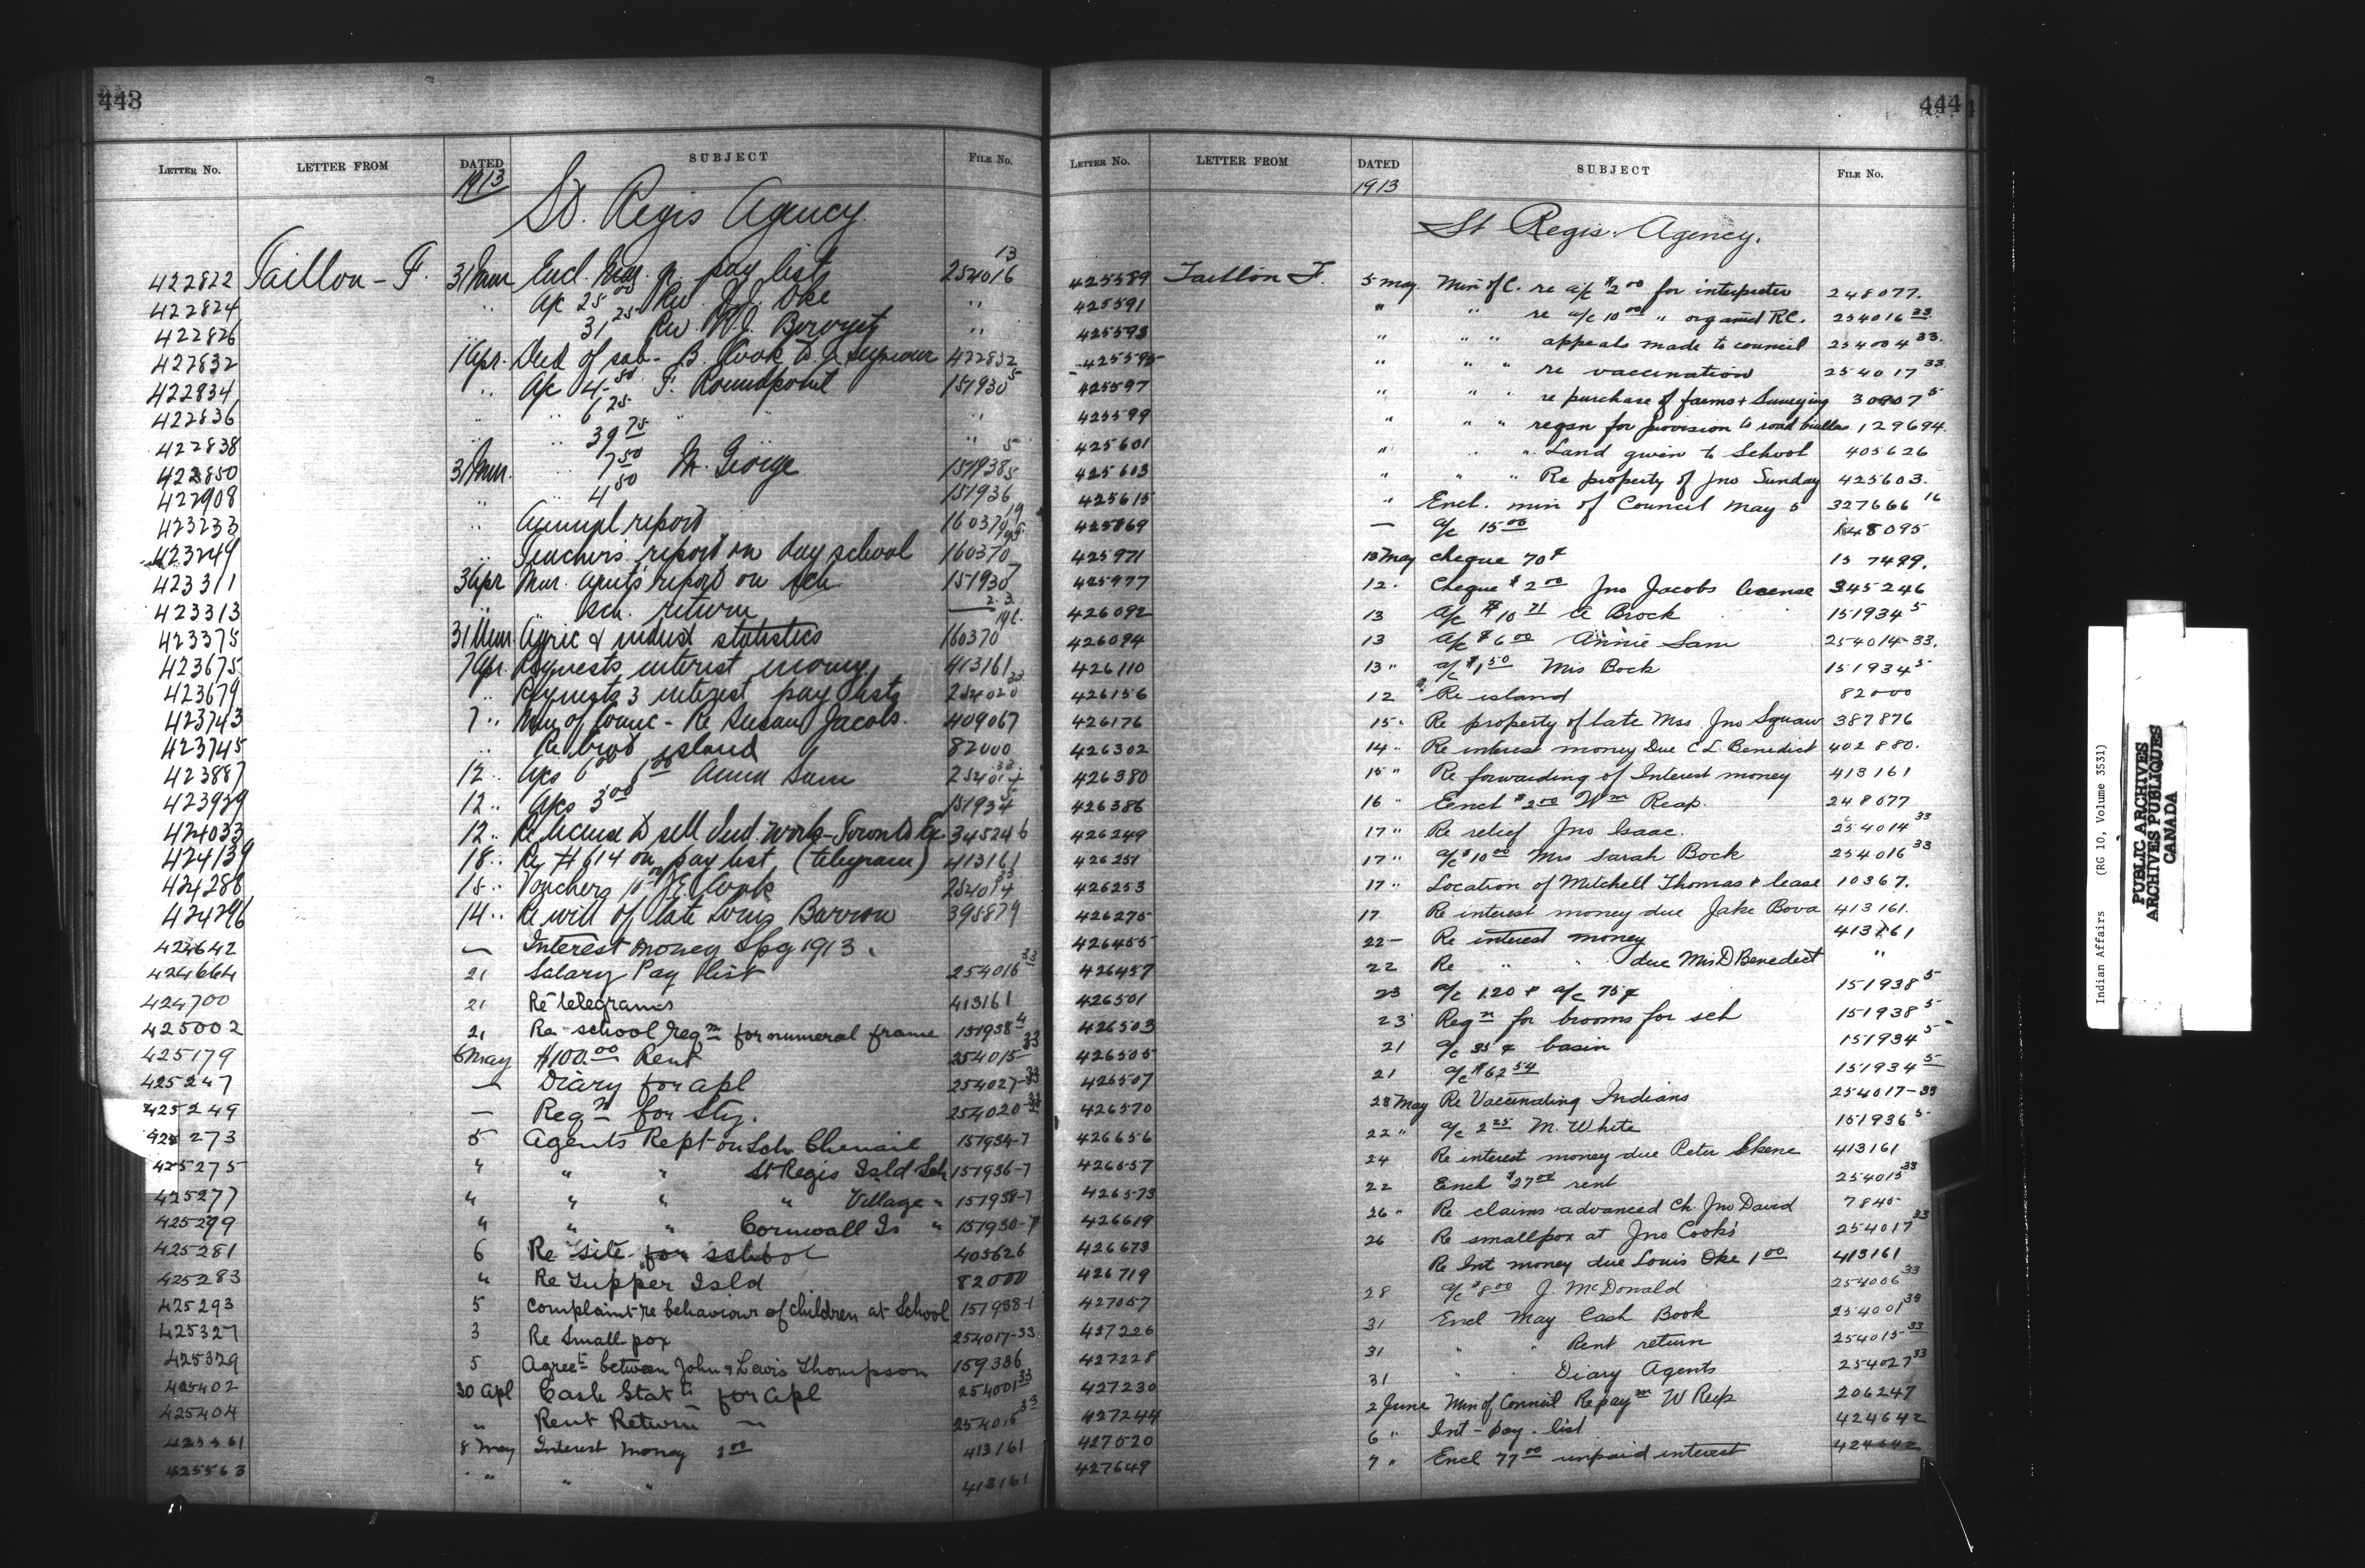 443
LETTER NO. LETTER FROM DATED SUBJECT FILE No.
1913
St. Regis Agency
422822 Taillon - F. 31 Mar Encl. pay lists 254016 13
422824 " a/c 25 00 Rev. J.J. Oke "
422826 31 25 Rev. "
422832 1 Apr. Deed of sab- B. Cook to J. 422832
422834 " a/c 4.50 F. Roundpoint 151930 5
422836 " " 6 25 " "
422838 " 39 75 "
422850 31 Mar. " 7 50 M. George 151938 5
422908 " 4 50 151936 5
423233 " Annual report 160370 19
423249 " Teachers report on day school 160370
423311 3 Apr Mar. Agent's report on sch. 151930 7
423313 " " sch. return
423375 31 Mar. Agric & indust statistics 160370
423675 7 Apr. Requests interest money 413161
423679 " Requests 3 interest pay lists 254020 33
423743 7 " Min of Counc - Re Susan Jacobs. 409067
423745 " Re island 82000
423887 12 " a/cs 6 00 Anna Sam 254014 33
423929 12 " a/cs 3 00 151934 5
424033 12 " Re license to sell Ind. work - Toronto Ex. 345246
424139 18 " Re # 614 on pay list (telegram) 413161
424288 15 " Vouchers 10 00 J E Cook 254014 33
424296 14 " Re will of late Louis Barron 395879
424642 — Interest money Spg 1913.
424664 21 Salary Pay List 254016 33
424700 21 Re telegrams 413161
425002 21 Re school reqn for numeral frame 151938 4
425179 6 May $100.00 Rent 254015 33
425247 — Diary for apl 254027-33
425249 — Reqn for Sty. 254020-33
425273 5 Agents Rept on Sch Chenail 151934-7
425275 " " " St Regis Isld Sch 151936-7
425277 " " " " Village " 151938-7
425279 " " " Cornwall Is " 151930-7
425281 6 Re site for school 405626
425283 " Re Supper Isld 82000
425293 5 Complaint re behaviour of children at School 151938-1
425327 3 Re Small pox 254017-33
425329 5 Agreet between John & Lewis Thompson 159386
425402 30 Apl Cash Statt for apl 254001 33
425404 " Rent Return — 254015 33
425561 8 May Interest Money 2 00 413161
425563 " " " " 413161
444
LETTER NO. LETTER FROM DATED SUBJECT FILE No.
1913
St Regis Agency.
425589 Taillon F. 5 May Min of C. re a/c $2 00 for interpreter 248077.
425591 " " re a/c 10 00 " organist R.C. 254016 33
425593 " " " appeals made to council 254004 33.
425595 " " " re vaccination 254017 33
425597 " " " re purchase of farms & Surveying 30807 5
425599 " " " reqsn for provision to road builders 129694.
425601 " " " Land given to School 405626
425603 " " " Re property of Jno Sunday 425603.
425615 " Encl. min of Council May 5 327666 16
425869 — a/c 15 00 148095
425971 13 May cheque 70¢ 157499.
425977 12. Cheque $2 00 Jno Jacobs license 345246
426092 13 a/c $10 71 A Brock 151934 5
426094 13 a/c $6 00 Annie Sam 254014-33.
426110 13 " a/c $1.50 Mrs Bock 151934 5
426156 12 Re island 82000
426176 15 " Re property of late Mrs. Jno Squaw 387876
426302 14 " Re interest money Due C L Benedict 402880.
426380 15 " Re forwarding of Interest money 413161
426386 16 " Eencl $2.00 Wm Reap. 248077
426249 17 " Re relief Jno Isaac. 254014 33
426251 17 " a/c $10 00 Mrs Sarah Bock 254016 33
426253 17 " Location of Mitchell Thomas & lease 10367.
426275 17 Re interest money due Jake Bova 413161.
426455 22 — Re interest money 413161
426457 22 Re " " due Mrs D Benedict "
426501 23 a/c 1.20 & a/c 75¢ 151938 5
426503 23 Reqn for brooms for sch 151938 5
426505 21 a/c 35¢ basin 151934 5
426507 21 a/c $62 54 151934 5
426570 28 May Re Vaccinating Indians 254017-33
426656 22 " a/c 2 25 M. White 151936 5
426557 24 Re interest money due Peter Skene 413161
426573 22 Encl $27 00 rent 254015 33
426619 26 " Re claims advanced Ch. Jno David 7845
426673 26 Re smallpox at Jno Cook's 254017 33
426719 Re Int money due Louis Oke 1 00 413161
427057 28 a/c $8 00 J. McDonald 254006 33
427226 31 Encl May Cash Book 254001 33
427228 31 " " Rent return 254015 33
427230 31 " " Diary Agents 254027 33
427244 2 June Min of Council Re paym W Reap 206247
427520 6 " Int - pay - list 424642
427649 7 " Encl 77 00 unpaid interest 424642
Indian Affairs (RG 10, Volume 3531)
PUBLIC ARCHIVES
ARCHIVES PUBLIQUES
CANADA